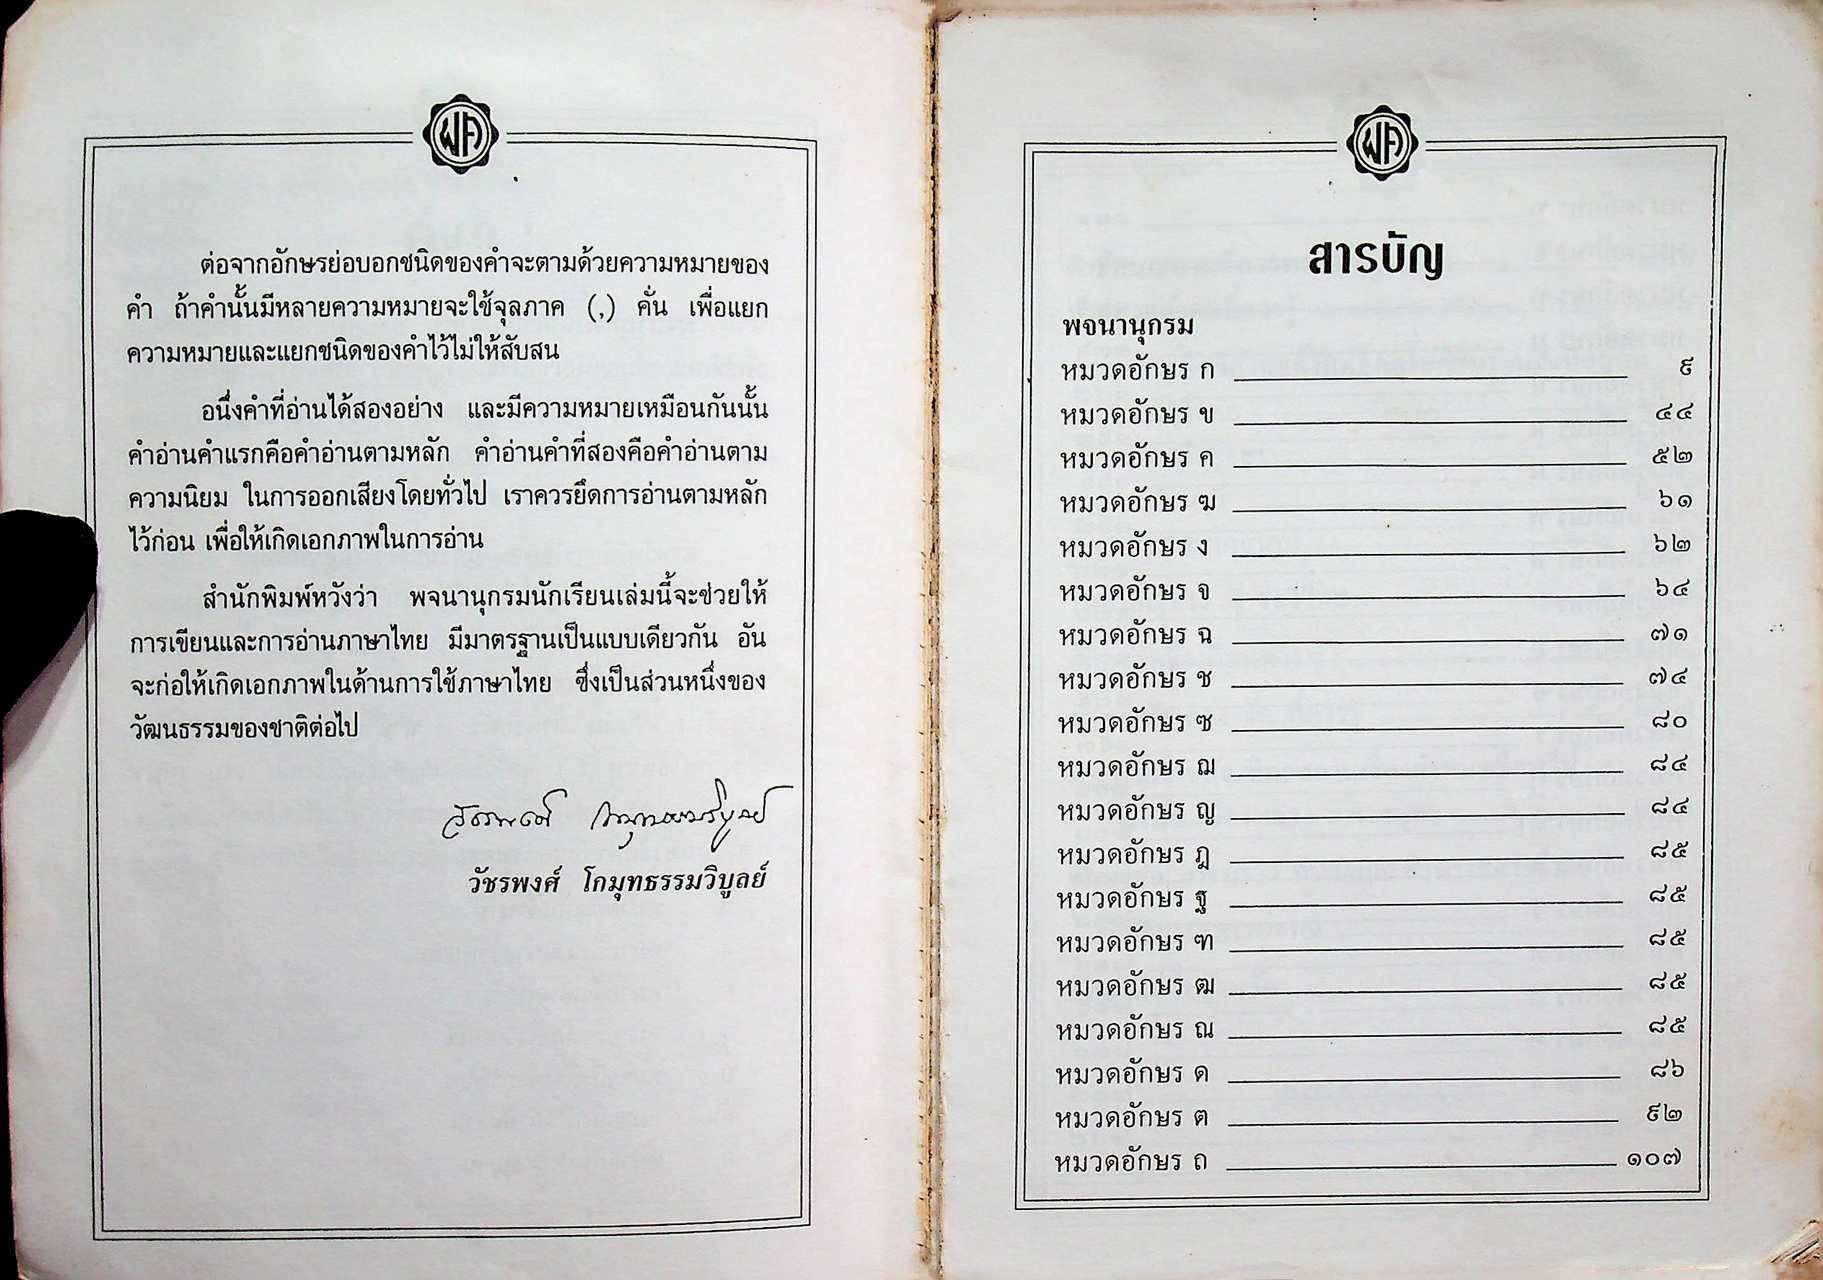 ผด
ต่อจากอักษรย่อบอกชนิดของคำจะตามด้วยความหมายของ
คำ ถ้าคำนั้นมีหลายความหมายจะใช้จุลภาค (,) คั่น เพื่อแยก
ความหมายและแยกชนิดของคำไว้ไม่ให้สับสน
อนึ่งคำที่อ่านได้สองอย่าง และมีความหมายเหมือนกันนั้น
คำอ่านคำแรกคือคำอ่านตามหลัก คำอ่านคำที่สองคือคำอ่านตาม
ความนิยม ในการออกเสียงโดยทั่วไป เราควรยึดการอ่านตามหลัก
ไว้ก่อน เพื่อให้เกิดเอกภาพในการอ่าน
สำนักพิมพ์หวังว่า พจนานุกรมนักเรียนเล่มนี้จะช่วยให้
การเขียนและการอ่านภาษาไทย มีมาตรฐานเป็นแบบเดียวกัน อัน
จะก่อให้เกิดเอกภาพในด้านการใช้ภาษาไทย ซึ่งเป็นส่วนหนึ่งของ
วัฒนธรรมของชาติต่อไป
วัชรพงศ์ โกมุทธรรมวิบูลย์
ผด
สารบัญ
พจนานุกรม
หมวดอักษร ก ๙
หมวดอักษร ข ๔๔
หมวดอักษร ค ๕๒
หมวดอักษร ฆ ๖๑
หมวดอักษร ง ๖๒
หมวดอักษร จ ๖๔
หมวดอักษร ฉ ๗๑
หมวดอักษร ช ๗๔
หมวดอักษร ซ ๘๐
หมวดอักษร ฌ ๘๔
หมวดอักษร ญ ๘๔
หมวดอักษร ฎ ๘๕
หมวดอักษร ฐ ๘๕
หมวดอักษร ฑ ๘๕
หมวดอักษร ฒ ๘๕
หมวดอักษร ณ ๘๕
หมวดอักษร ด ๘๖
หมวดอักษร ต ๙๒
หมวดอักษร ถ ๑๐๗